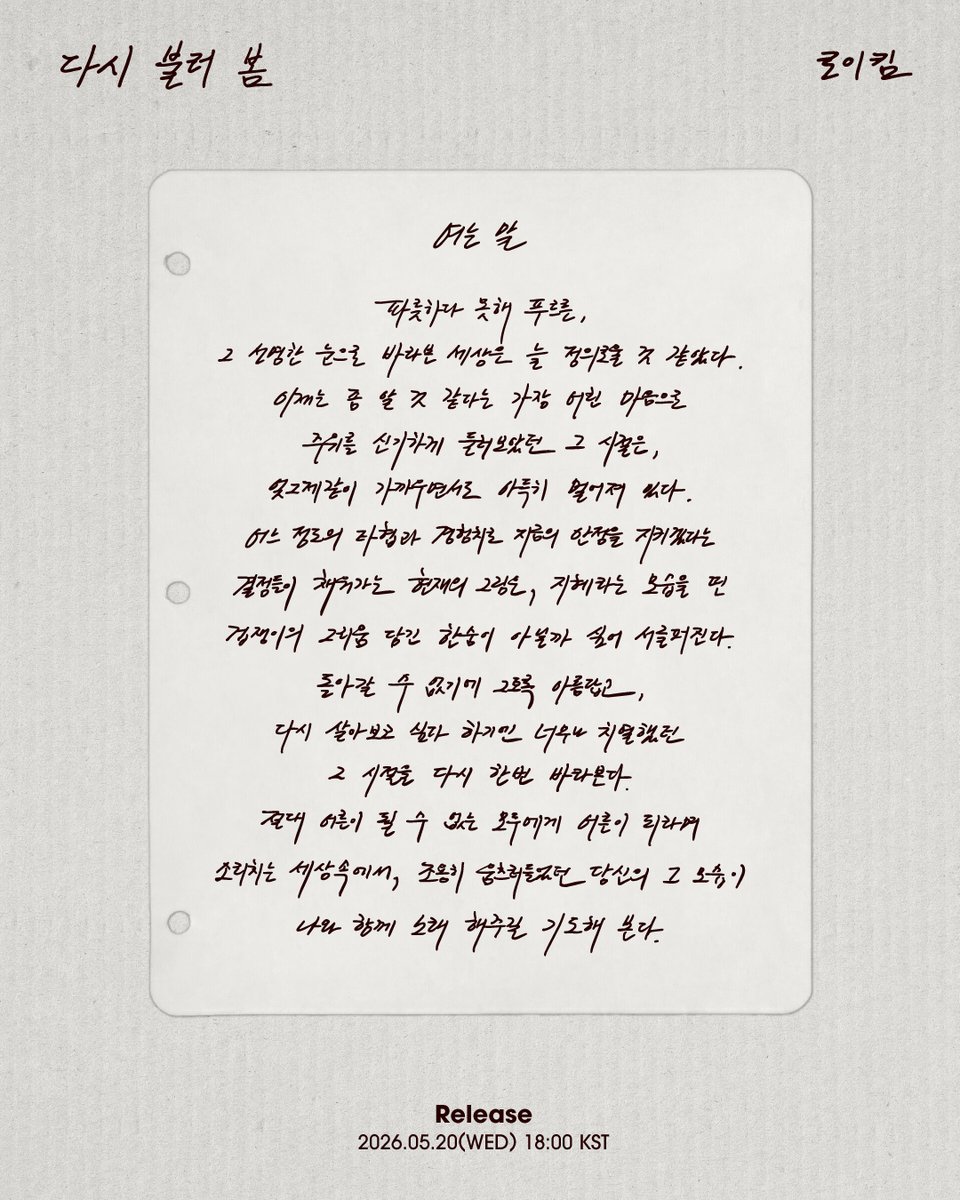 다시 불러 봄
로이킴
여는 말
파릇하다 못해 푸르른,
그 선명한 눈으로 바라본 세상은 늘 정의로울 것 같았다.
이제는 좀 알 것 같다는 가장 어린 마음으로
주위를 신기하게 둘러보았던 그 시절은,
엊그제같이 가까우면서도 아득히 멀어져 있다.
어느 정도의 타협과 경험치로 지금의 안정을 지키겠다는
결정들이 채워가는 현재의 그림은, 지혜라는 모습을 띤
겁쟁이의 그리움 담긴 한숨이 아닐까 싶어 서글퍼진다.
돌아갈 수 없기에 그토록 아름답고,
다시 살아보고 싶다 하기엔 너무나 치열했던
그 시절을 다시 한번 바라본다.
절대 어른이 될 수 없는 모두에게 어른이 되라며
소리치는 세상속에서, 조용히 움츠러들었던 당신의 그 모습이
나와 함께 노래 해주길 기도해 본다.
Release
2026.05.20(WED) 18:00 KST